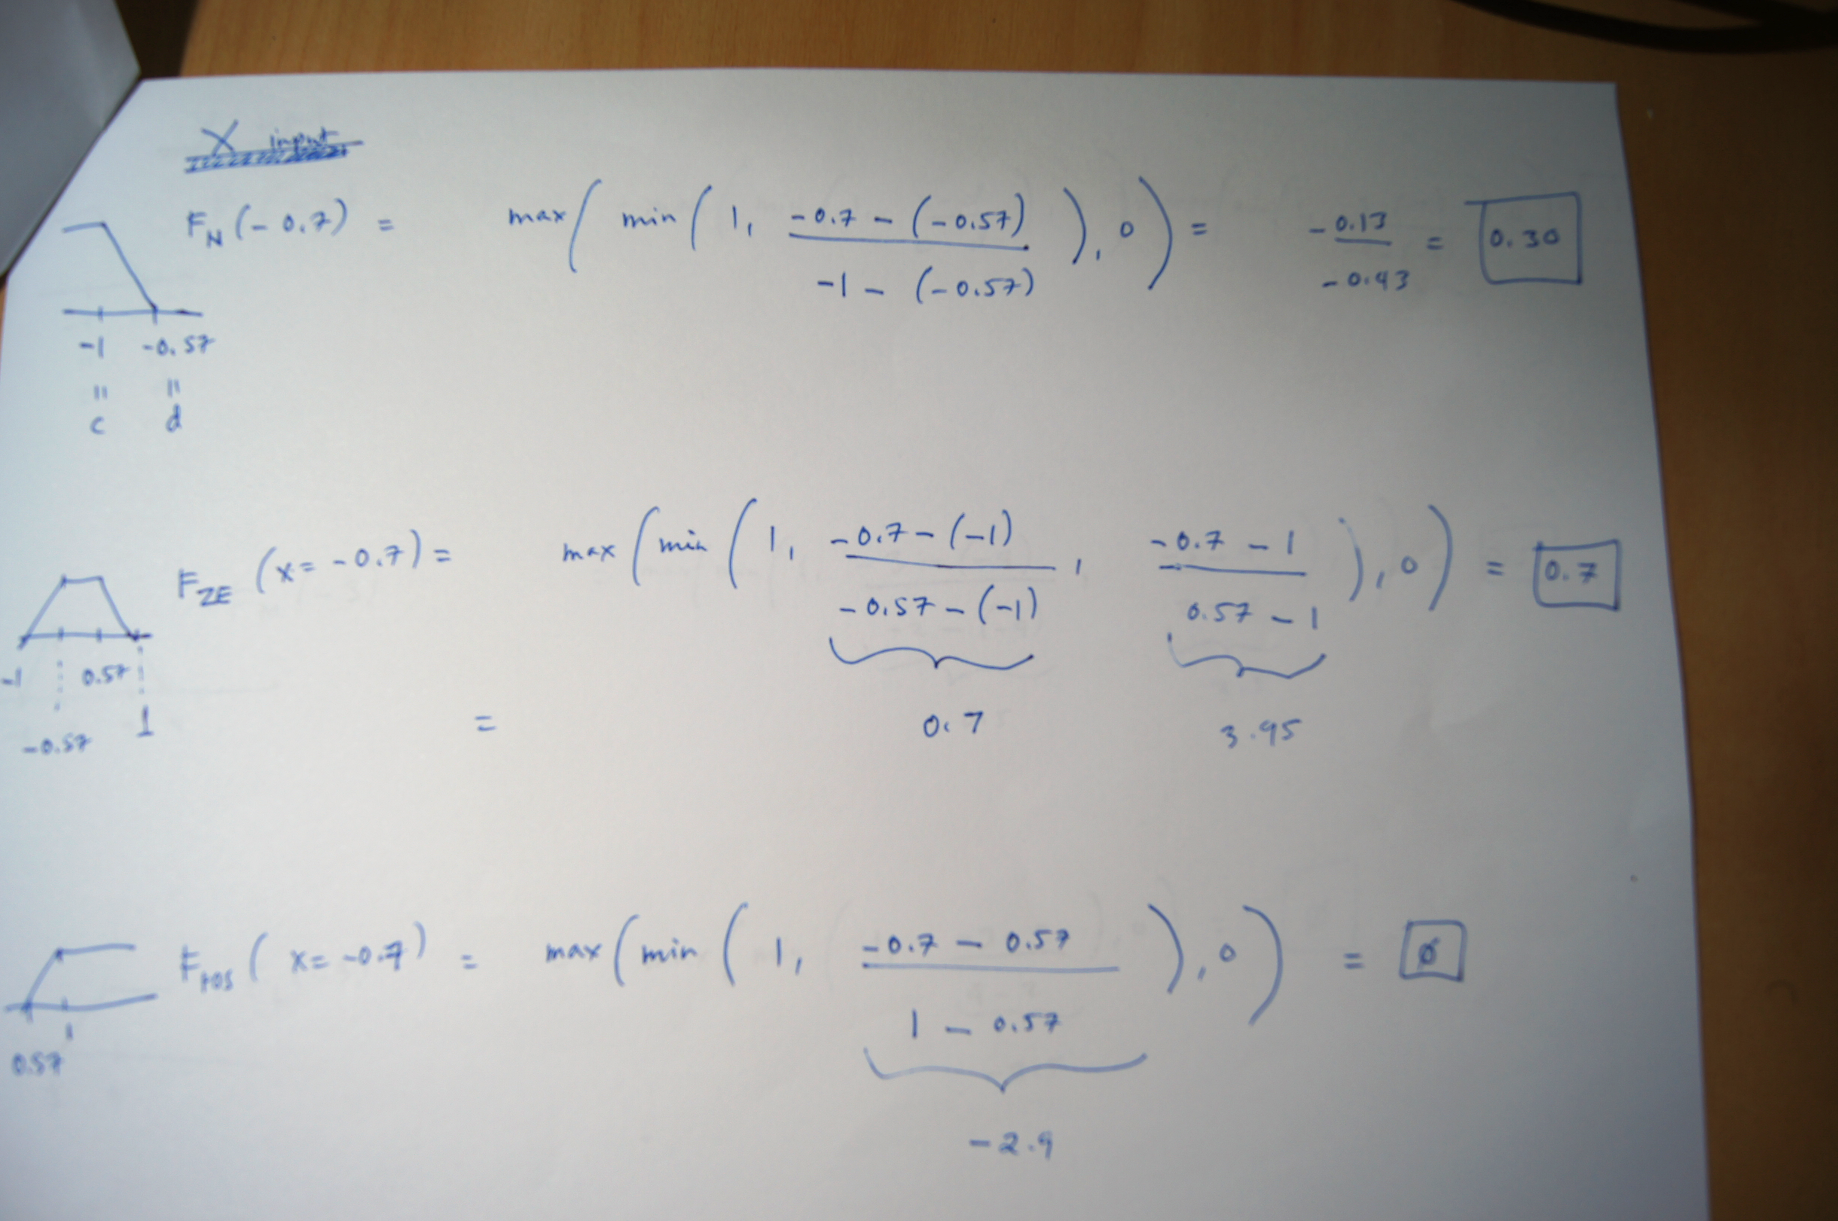 X input
F_N (-0.7) = max( min( 1, (-0.7 - (-0.57)) / (-1 - (-0.57)) ), 0 ) = -0.13 / -0.43 = 0.30
-1 -0.57
= =
c d
F_ZE (x = -0.7) = max( min( 1, (-0.7 - (-1)) / (-0.57 - (-1)), (-0.7 - 1) / (0.57 - 1) ), 0 ) = 0.7
-1 0.57
-0.57 1
= 0.7 3.95
F_POS ( x = -0.7) = max( min( 1, (-0.7 - 0.57) / (1 - 0.57) ), 0 ) = 0
1
0.57
-2.9